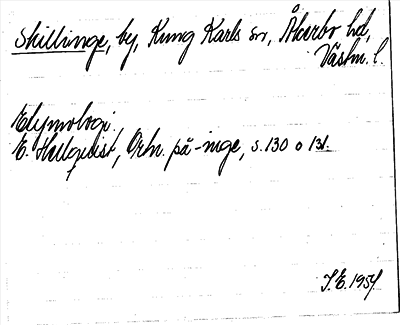 Skillinge, by, Kung Karls sn, Åkerbo hd,
Västm. l.
Etymologi.
E. Hellquist, Ortn. på -inge, s. 130 o 131.
J.E. 1954